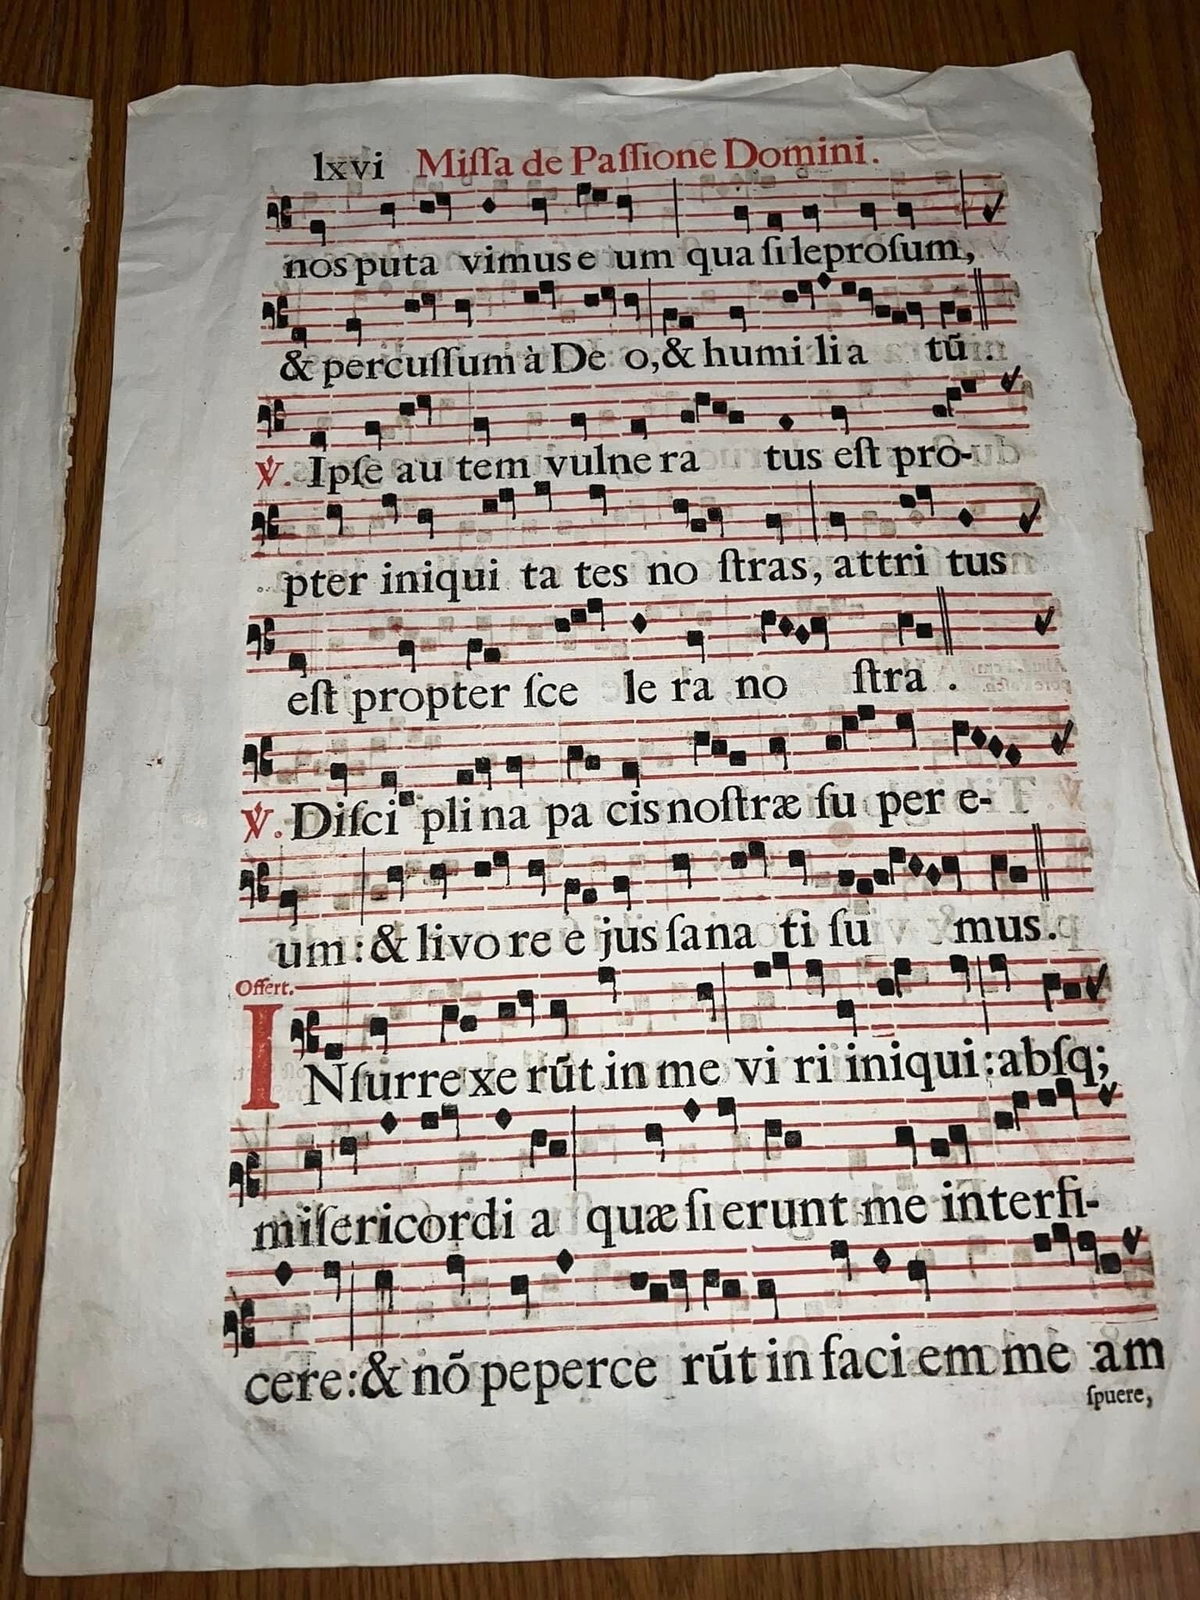 lxvi Miſſa de Paſſione Domini.
nos puta vimus e um qua ſi leproſum,
& percuſſum à De o, & humi li a tũ .
℣. Ipſe au tem vulne ra tus eſt pro-
pter iniqui ta tes no ſtras, attri tus
eſt propter ſce le ra no ſtra .
℣. Diſci pli na pa cis noſtræ ſu per e-
um: & livo re e jus ſana ti ſu mus.
Offert.
INſurre xe rũt in me vi ri iniqui: abſq;
miſericordi a quæ ſi erunt me interfi-
cere: & nõ peperce rũt in faci em me am
ſpuere,